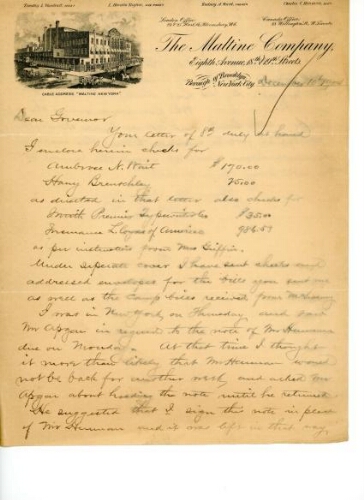 The Maltine Company,
Eighth Avenue, 18th & 19th Streets
Borough of Brooklyn
New York City
CABLE ADDRESS "MALTINE NEW YORK"
Dear Governor
Your letter of 8th duly at hand
I enclose herein checks for
Ambrose N. Wait $170.00
Harry 25.00
as directed in that letter also checks for
Smith Premier Typewriter Co $35.00
Insurance Lloyds of America 98.53
as per instructions from Mrs Griffin.
Under separate cover I have sent checks and
addressed envelopes for the bills you sent me
as well as the Camp bills received from
I was in New York on Thursday and saw
Mr Apgar in regard to the note of Mr Herman
due on Monday. At that time I thought
it more than likely that Mr Herman would
not be back for another week and asked Mr
Apgar about holding the note until he returned
He suggested that I sign the note in place
of Mr Herman and it was left in that way,